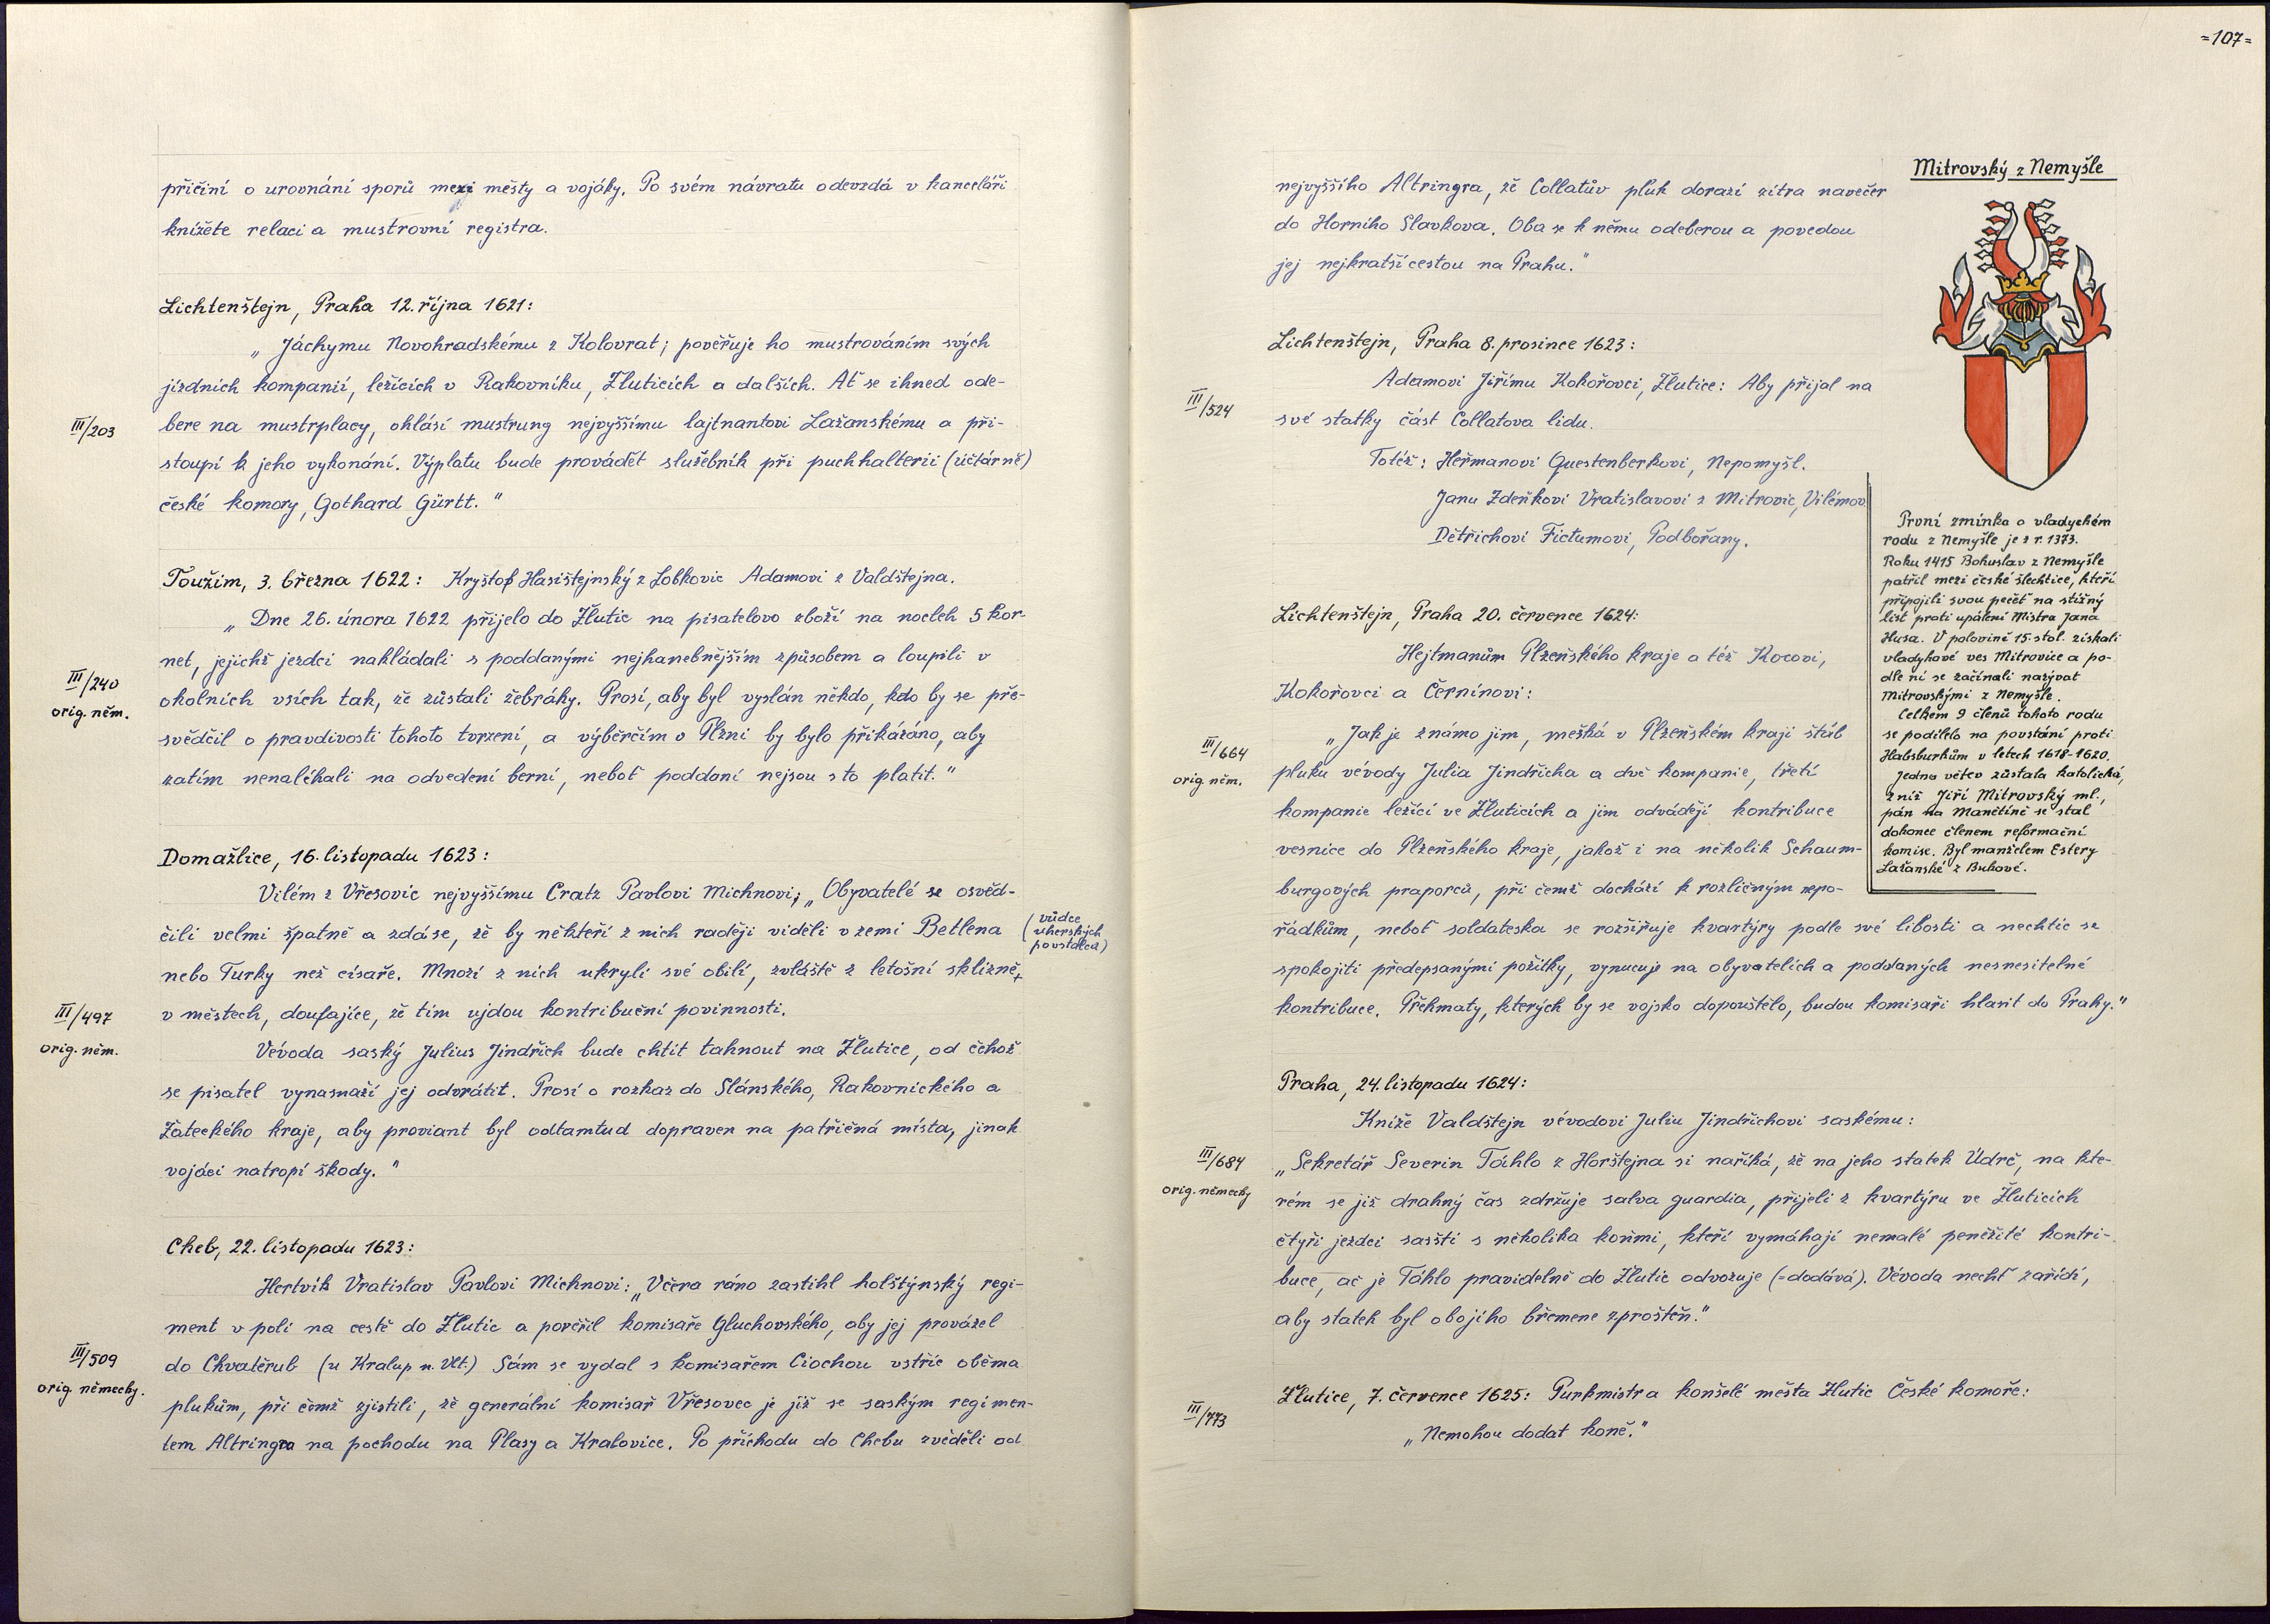 přičiní o urovnání sporů mezi městy a vojáky. Po svém návratu odevzdá v kanceláři
knížete relaci a mustrovní registra.
Lichtenštejn, Praha 12. října 1621:
„Jáchymu Novohradskému z Kolovrat; pověřuje ho mustrováním svých
jízdních kompanií, ležících v Rakovníku, Žluticích a dalších. Ať se ihned ode-
III/203
bere na mustrplacy, ohlásí mustrung nejvyššímu lajtnantovi Lažanskému a při-
stoupí k jeho vykonání. Výplatu bude provádět služebník při puchhalterii (účtárně)
české komory, Gothard Gürtt."
Toužim, 3. března 1622: Kryštof Hasištejnský z Lobkovic Adamovi z Valdštejna.
„Dne 26. února 1622 přijelo do Žlutic na pisatelovo zboží na nocleh 5 kor-
net, jejichž jezdci nakládali s poddanými nejhanebnějším způsobem a loupili v
III/240
orig. něm.
okolních vsích tak, že zůstali žebráky. Prosí, aby byl vyslán někdo, kdo by se pře-
svědčil o pravdivosti tohoto tvrzení, a výběrčím v Plzni by bylo přikázáno, aby
zatím nenaléhali na odvedení berní, neboť poddaní nejsou s to platit."
Domažlice, 16. listopadu 1623:
Vilém z Vřesovic nejvyššímu Cratz Pavlovi Michnovi; „Obyvatelé se osvěd-
čili velmi špatně a zdá se, že by někteří z nich raději viděli v zemi Betlena
(vůdce
uherských
povstalců)
nebo Turky než císaře. Mnozí z nich ukryli své obilí, zvláště z letošní sklizně,
III/497
orig. něm.
v městech, doufajíce, že tím ujdou kontribuční povinnosti.
Vévoda saský Julius Jindřich bude chtít táhnout na Žlutice, od čehož
se pisatel vynasnaží jej odvrátit. Prosí o rozkaz do Slánského, Rakovnického a
Žateckého kraje, aby proviant byl odtamtud dopraven na patřičná místa, jinak
vojáci natropí škody."
Cheb, 22. listopadu 1623:
Hertvík Vratislav Pavlovi Michnovi: „Včera ráno zastihl holštýnský regi-
ment v poli na cestě do Žlutic a pověřil komisaře Gluchovského, aby jej provázel
III/509
orig. německy.
do Chvatěrub (u Kralup n. Vlt.) Sám se vydal s komisařem Ciochou vstříc oběma
plukům, při čemž zjistili, že generální komisař Vřesovec je již se saským regimen-
tem Altringra na pochodu na Plasy a Kralovice. Po příchodu do Chebu zvěděli od
=107=
nejvyššího Altringra, že Collatův pluk dorazí zítra navečer
do Horního Slavkova. Oba se k němu odeberou a povedou
jej nejkratší cestou na Prahu."
Lichtenštejn, Praha 8. prosince 1623:
III/524
Adamovi Jiřímu Kokořovci, Žlutice: Aby přijal na
své statky část Collatova lidu.
Totéž: Heřmanovi Questenberkovi, Nepomyšl.
Janu Zdeňkovi Vratislavovi z Mitrovic, Vilémov
Dětřichovi Fictumovi, Podbořany.
Lichtenštejn, Praha 20. července 1624:
Hejtmanům Plzeňského kraje a též Kocovi,
Kokořovci a Černínovi:
III/664
orig. něm.
„Jak je známo jim, mešká v Plzeňském kraji štáb
pluku vévody Julia Jindřicha a dvě kompanie, třetí
kompanie ležící ve Žluticích a jim odvádějí kontribuce
vesnice do Plzeňského kraje, jakož i na několik Schaum-
burgových praporců, při čemž dochází k rozličným nepo-
řádkům, neboť soldateska se rozšiřuje kvartýry podle své libosti a nechtíc se
spokojiti předepsanými požitky, vynucuje na obyvatelích a poddaných nesnesitelné
kontribuce. Přehmaty, kterých by se vojsko dopouštělo, budou komisaři hlásit do Prahy."
Mitrovský z Nemyšle
První zmínka o vladyckém
rodu z Nemyšle je z r. 1373.
Roku 1415 Bohuslav z Nemyšle
patřil mezi české šlechtice, kteří
připojili svou pečeť na stížný
list proti upálení Mistra Jana
Husa. V polovině 15. stol. získali
vladykové ves Mitrovice a po-
dle ní se začínali nazývat
Mitrovskými z Nemyšle.
Celkem 9 členů tohoto rodu
se podílelo na povstání proti
Habsburkům v letech 1618-1620.
Jedna větev zůstala katolická,
z níž Jiří Mitrovský ml.,
pán na Manětíně se stal
dokonce členem reformační
komise. Byl manželem Estery
Lažanské z Bukové.
Praha, 24. listopadu 1624:
Kníže Valdštejn vévodovi Juliu Jindřichovi saskému:
III/684
orig. německy
„Sekretář Severin Táhlo z Horštejna si naříká, že na jeho statek Údrč, na kte-
rém se již drahný čas zdržuje salva guardia, přijeli z kvartýru ve Žluticích
čtyři jezdci sasští s několika koňmi, kteří vymáhají nemalé peněžité kontri-
buce, ač je Táhlo pravidelně do Žlutic odvozuje (=dodává). Vévoda nechť zařídí,
aby statek byl obojího břemene zproštěn."
III/773
Žlutice, 7. července 1625: Purkmistr a konšelé města Žlutic České komoře:
„Nemohou dodat koně."